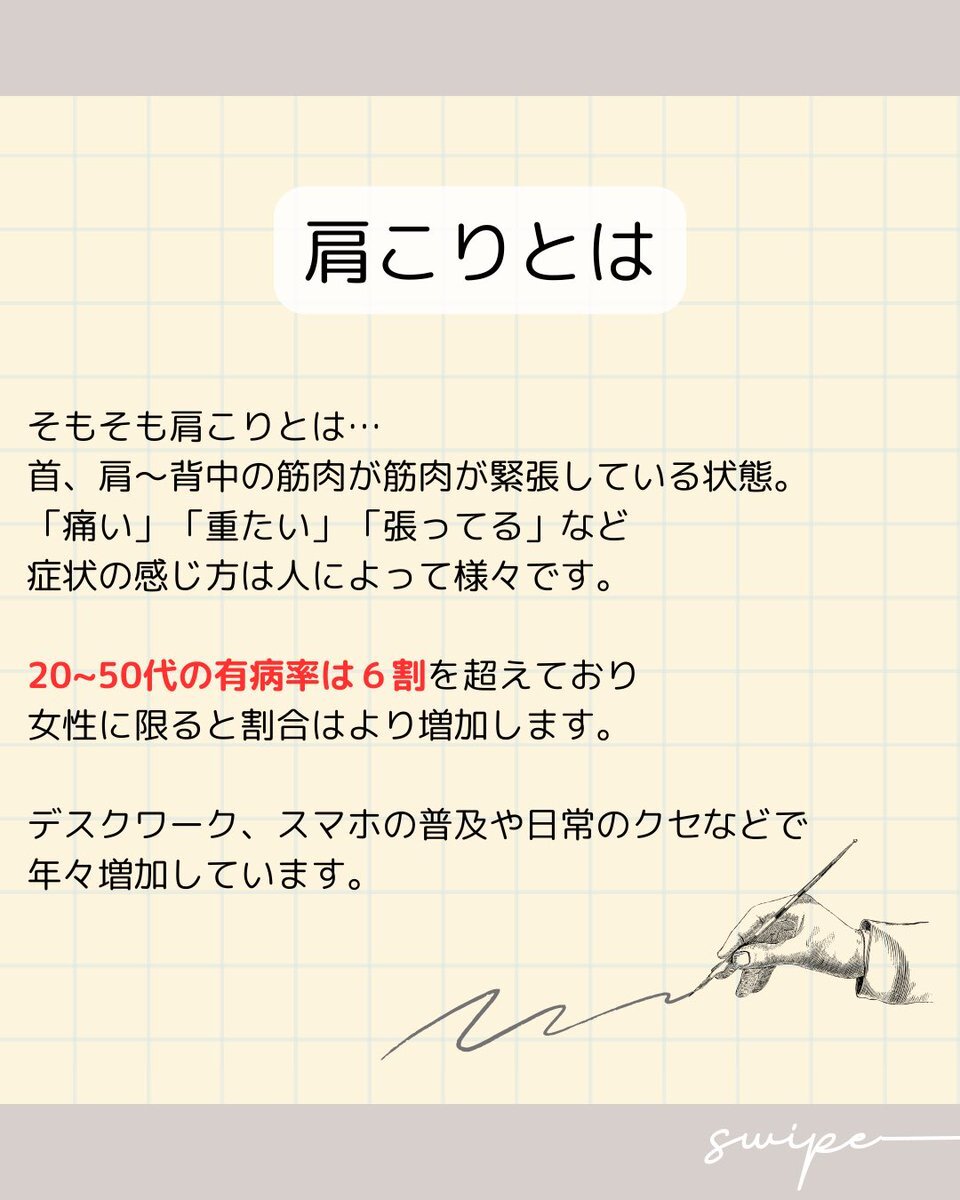 肩こりとは
そもそも肩こりとは…
首、肩〜背中の筋肉が筋肉が緊張している状態。
「痛い」「重たい」「張ってる」など
症状の感じ方は人によって様々です。
20~50代の有病率は６割を超えており
女性に限ると割合はより増加します。
デスクワーク、スマホの普及や日常のクセなどで
年々増加しています。
swipe